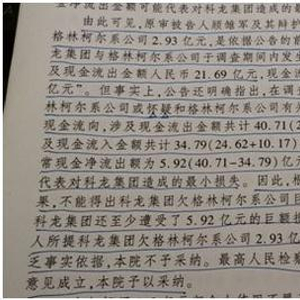 净流出金额可能代表对科龙集团造成的最
由此可见，原审被告人顾雏军及其辩
格林柯尔系公司2.93亿元，是依据公告的前
龙集团与格林柯尔系公司于调查期间内发生
及现金流出金额人民币21.69亿元，现金
亿元”。但事实上，公告还明确指出，在调查
林柯尔系公司或怀疑和格林柯尔系公司有
现金流向，涉及现金流出金额共计40.71(2
及现金流入金额共计34.79(24.62+10.17)
常现金净流出额为5.92(40.71-34.79)亿
代表对科龙集团造成的最小损失。因此，根
果，不能得出科龙集团欠格林柯尔系公司巨
科龙集团还至少遭受了5.92亿元的巨额
人所提科龙集团欠格林柯尔系公司2.93亿
乏事实依据，本院不予采纳。最高人民检察
意见成立，本院予以采纳。